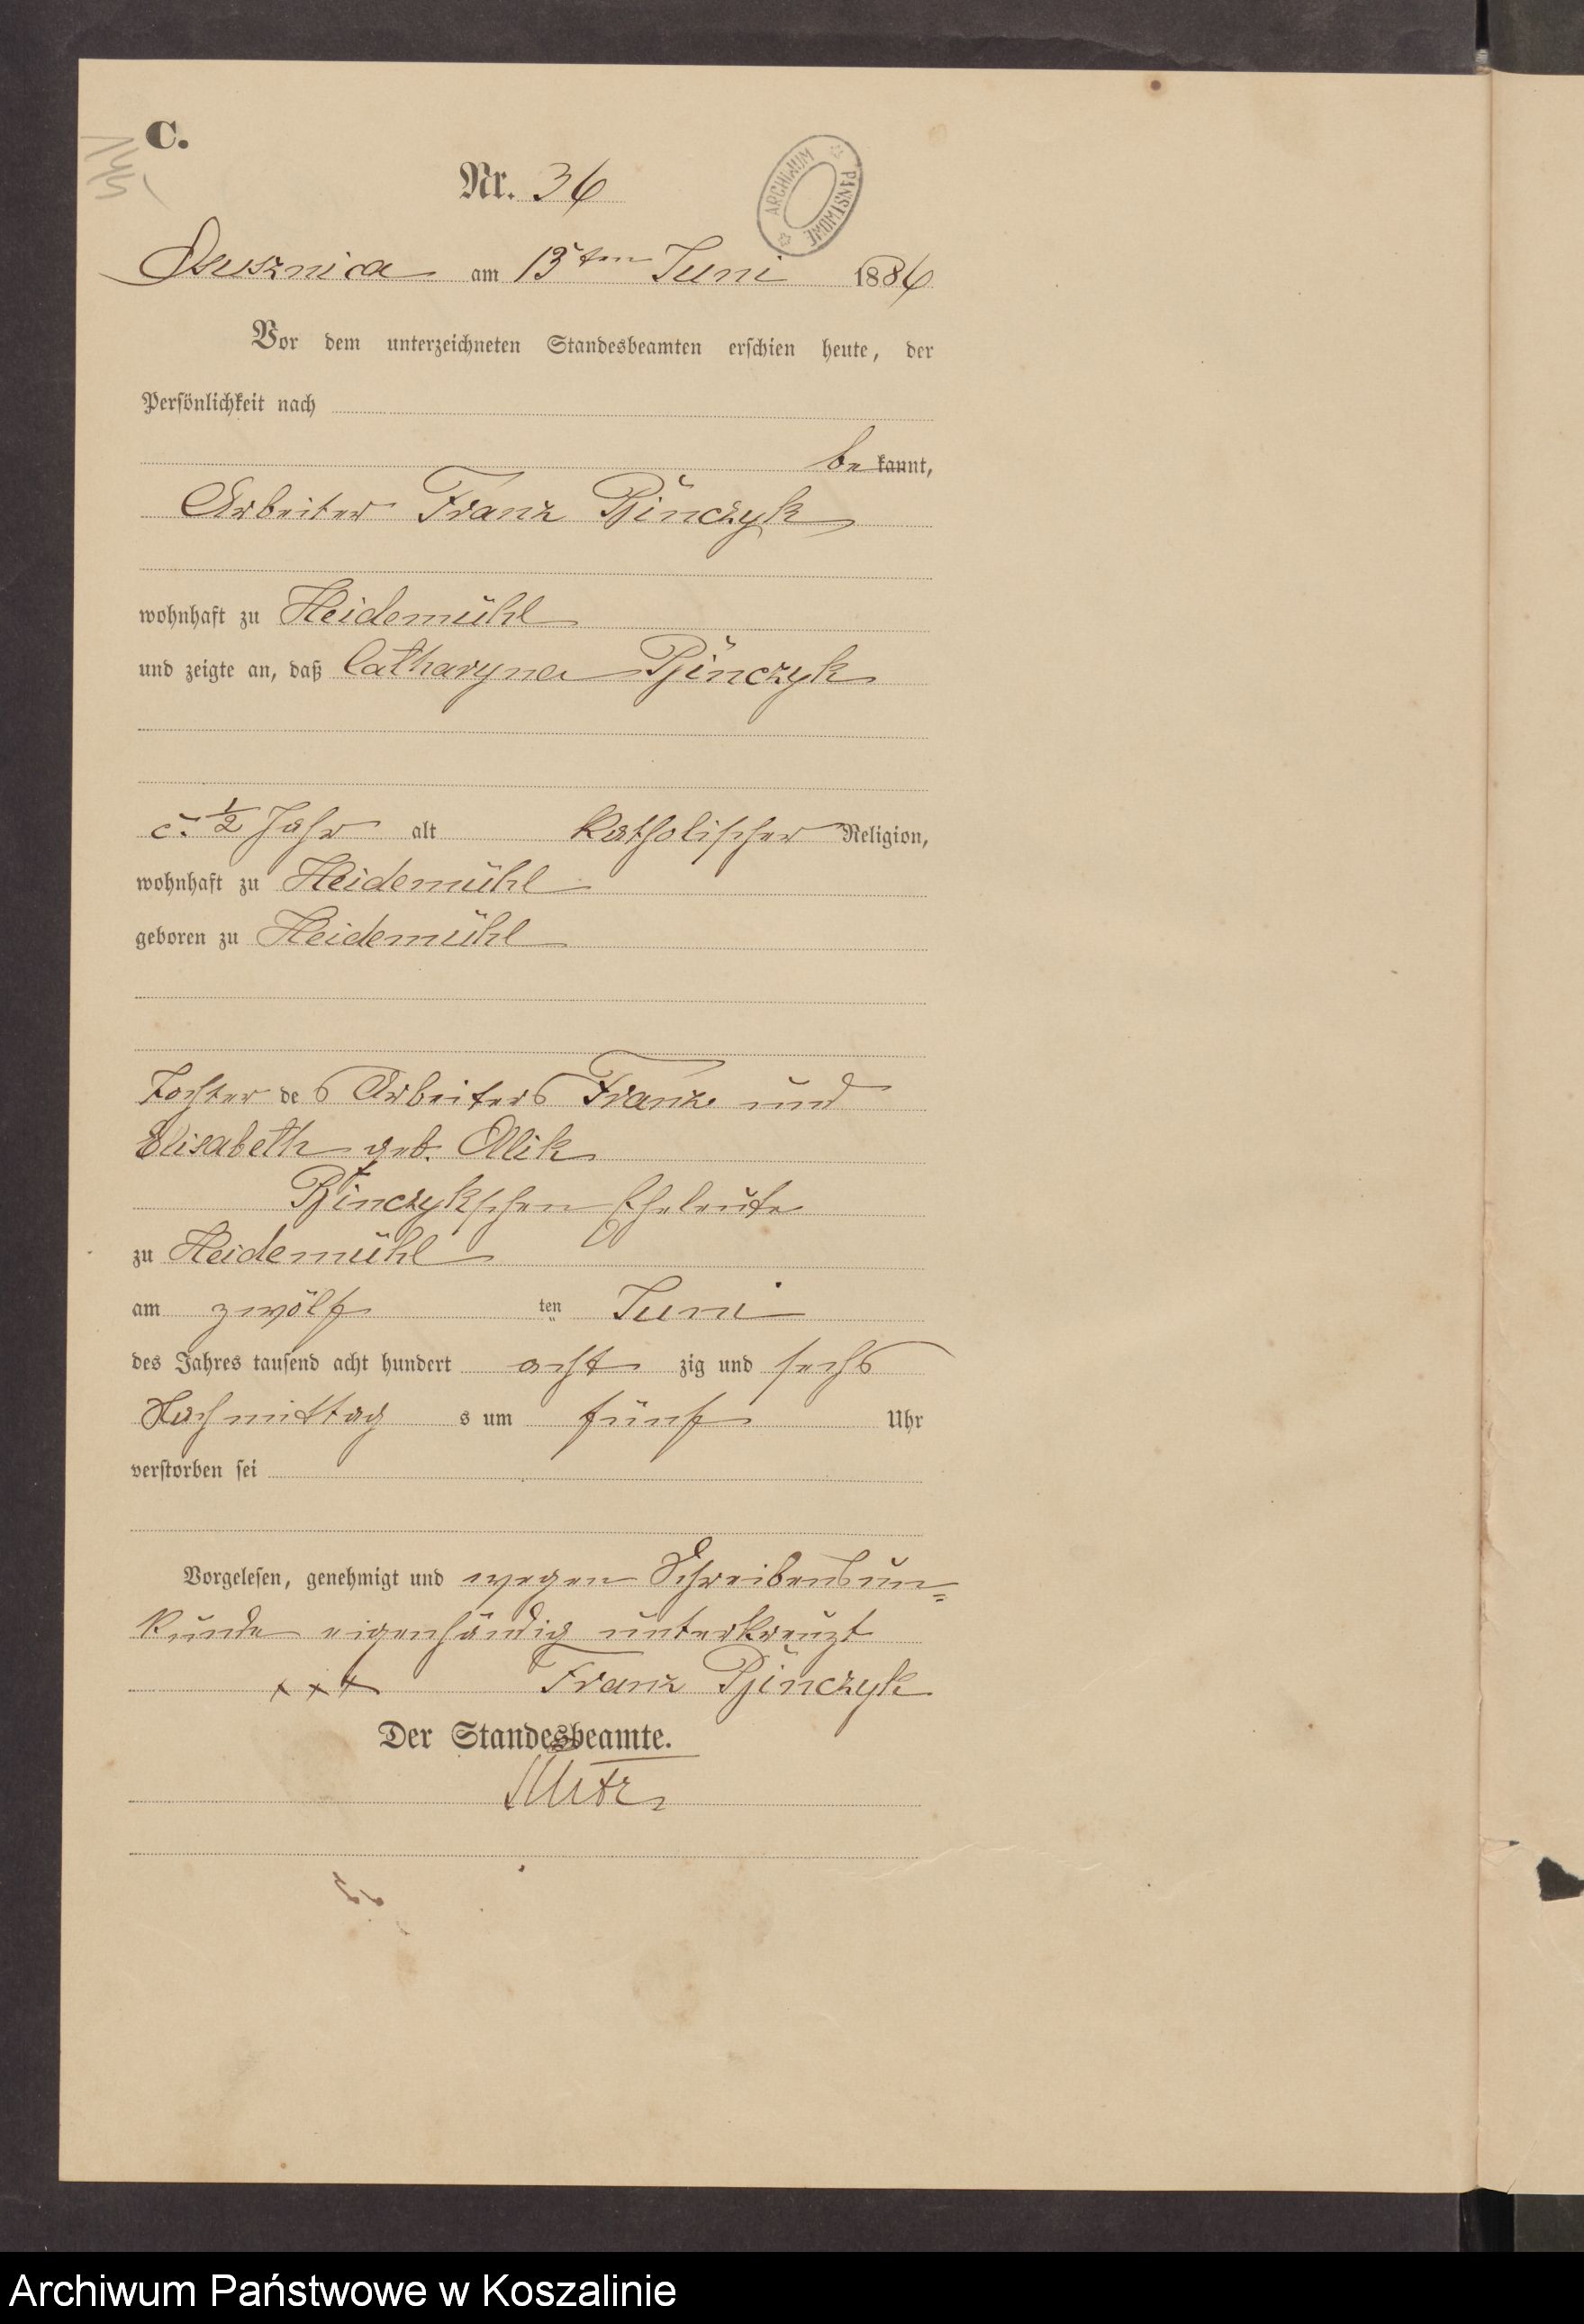 C.
Nr. 36
ARCHIWUM PAŃSTWOWE
Osusznica am 13ten Juni 1886
Vor dem unterzeichneten Standesbeamten erschien heute, der
Persönlichkeit nach
be kannt,
Arbeiter Franz Pjinczyk
wohnhaft zu Heidemühl
und zeigte an, daß Catharyna Pjinczyk
c. 1/2 Jahr alt katholischer Religion,
wohnhaft zu Heidemühl
geboren zu Heidemühl
Tochter des Arbeiters Franz und
Elisabeth geb. Olik
Pjinczykschen Eheleute
zu Heidemühl
am zwölf ten Juni
des Jahres tausend acht hundert acht zig und sechs
Nachmittag s um fünf Uhr
verstorben sei
Vorgelesen, genehmigt und wegen Schreibensun=
kunde eigenhändig unterkreuzt
xxx Franz Pjinczyk
Der Standesbeamte.
Archiwum Państwowe w Koszalinie